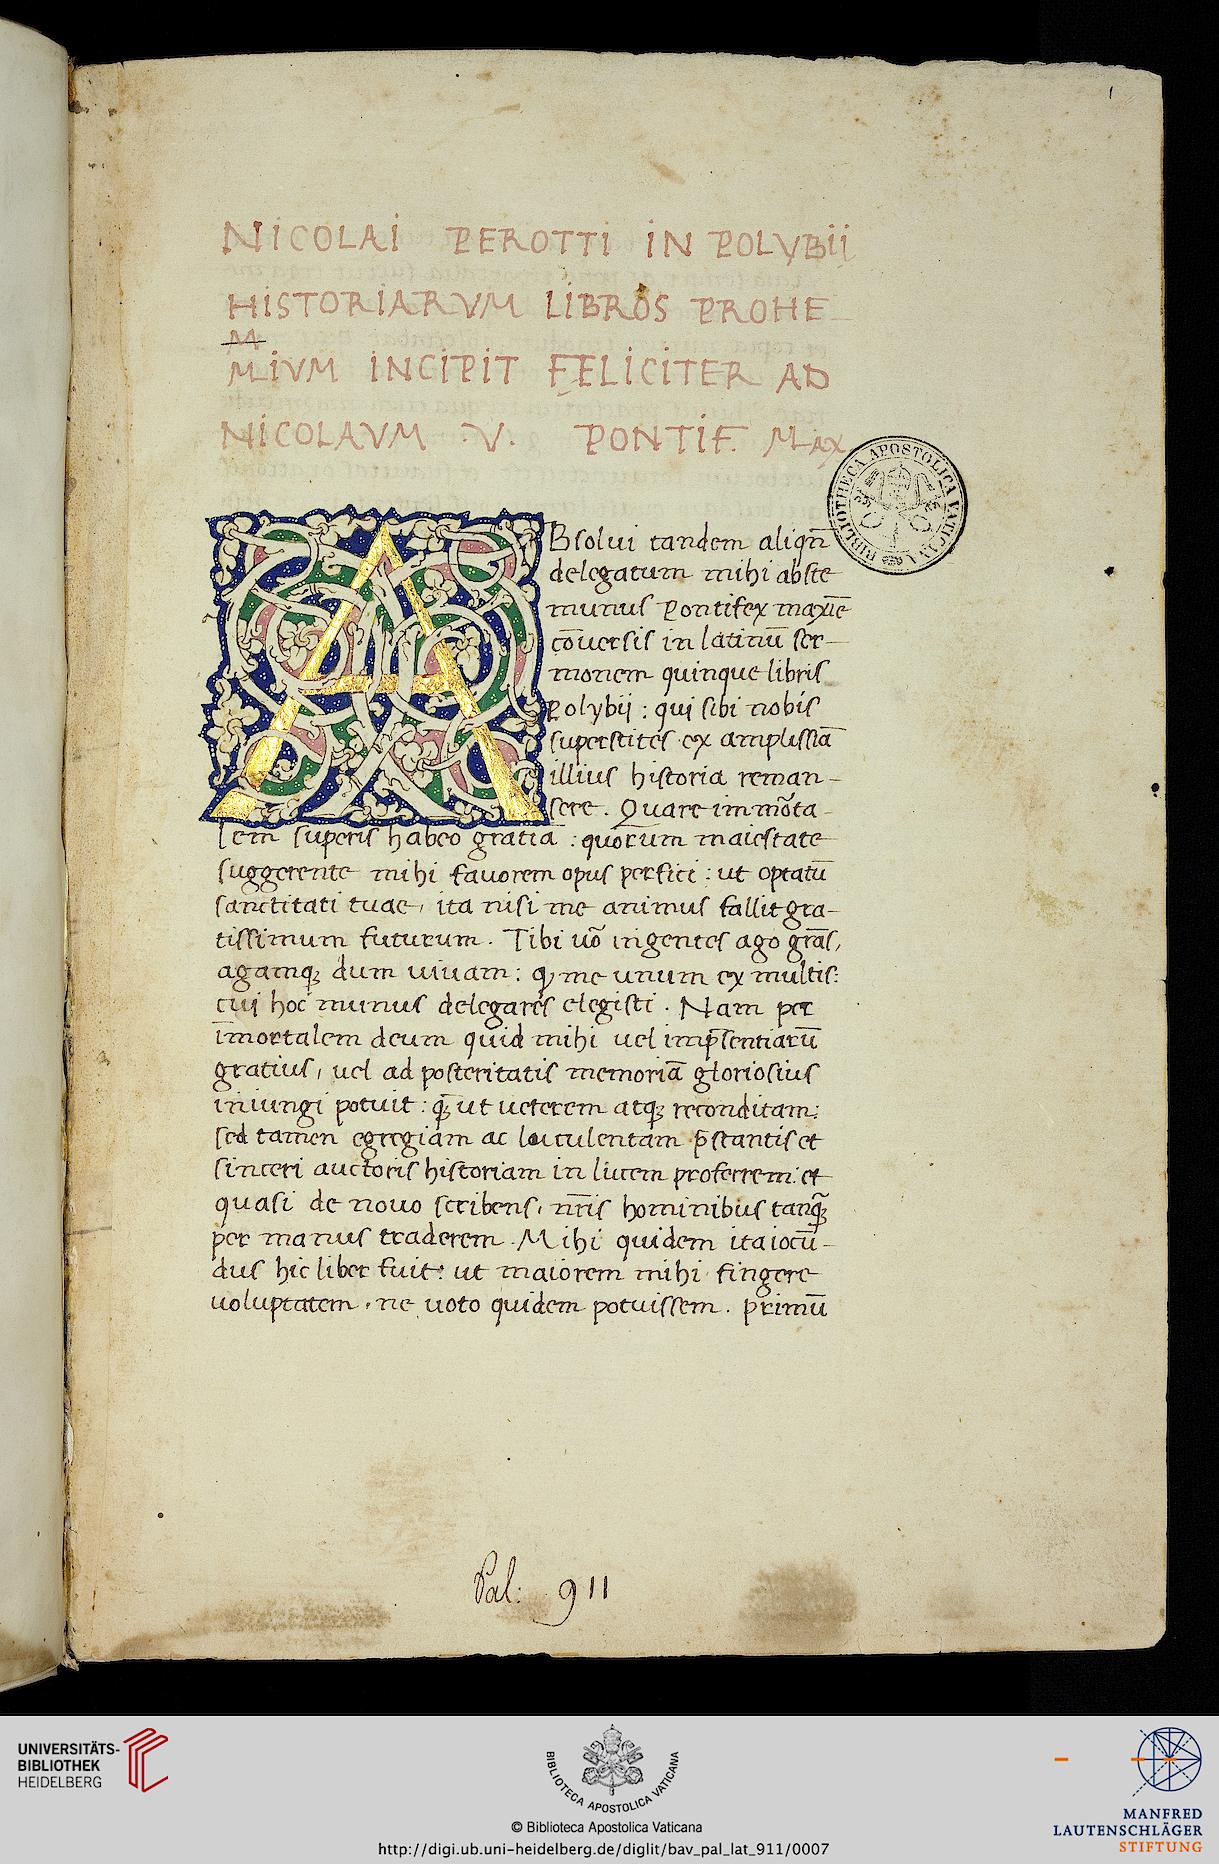 1
NICOLAI PEROTTI IN POLYBII
HISTORIARVM LIBROS PROHE
M
MIVM INCIPIT FELICITER AD
NICOLAVM .V. PONTIF. MAX
BIBLIOTHECA APOSTOLICA VATICANA
ABsolui tandem aliqn̄
delegatum mihi abs te
munus Pontifex maxīe
cōuersis in latinū ser-
monem quinque libris
Polybij : qui sibi nobis
superstites ex amplissīa
illius historia reman-
sere . Quare immōta
lem superis habeo gratiā : quorum maiestate
suggerente mihi fauorem opus perfeci : ut optatū
sanctitati tuae, ita nisi me animus fallit gra-
tissimum futurum . Tibi uō ingentes ago grās,
agamqꝫ dum uiuam : ꝙ me unum ex multis:
cui hoc munus delegares elegisti . Nam per
īmortalem deum quid mihi uel imp̄sentiarū
gratius, uel ad posteritatis memoriā gloriosius
iniungi potuit : qꝫ̄ ut ueterem atqꝫ reconditam:
sed tamen egregiam ac luculentam p̄stantis et
sinceri auctoris historiam in lucem proferrem: et
quasi de nouo scribens, nr̄is hominibus tanqꝫ̄
per manus traderem . Mihi quidem ita iocū-
dus hic liber fuit : ut maiorem mihi fingere
uoluptatem, ne uoto quidem potuissem . primū
Pal: 911
UNIVERSITÄTS-
BIBLIOTHEK
HEIDELBERG
BIBLIOTECA APOSTOLICA VATICANA
© Biblioteca Apostolica Vaticana
http://digi.ub.uni-heidelberg.de/diglit/bav_pal_lat_911/0007
MANFRED
LAUTENSCHLÄGER
STIFTUNG